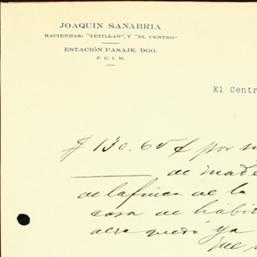 JOAQUIN SANABRIA
HACIENDAS: "TETILLAS", Y "EL CENTRO"
ESTACIÓN PASAJE, DGO.
F. C. I. M.
El Centr
$ 130.65 ¢ por
de made
de la finca de la
casa de habi
ya